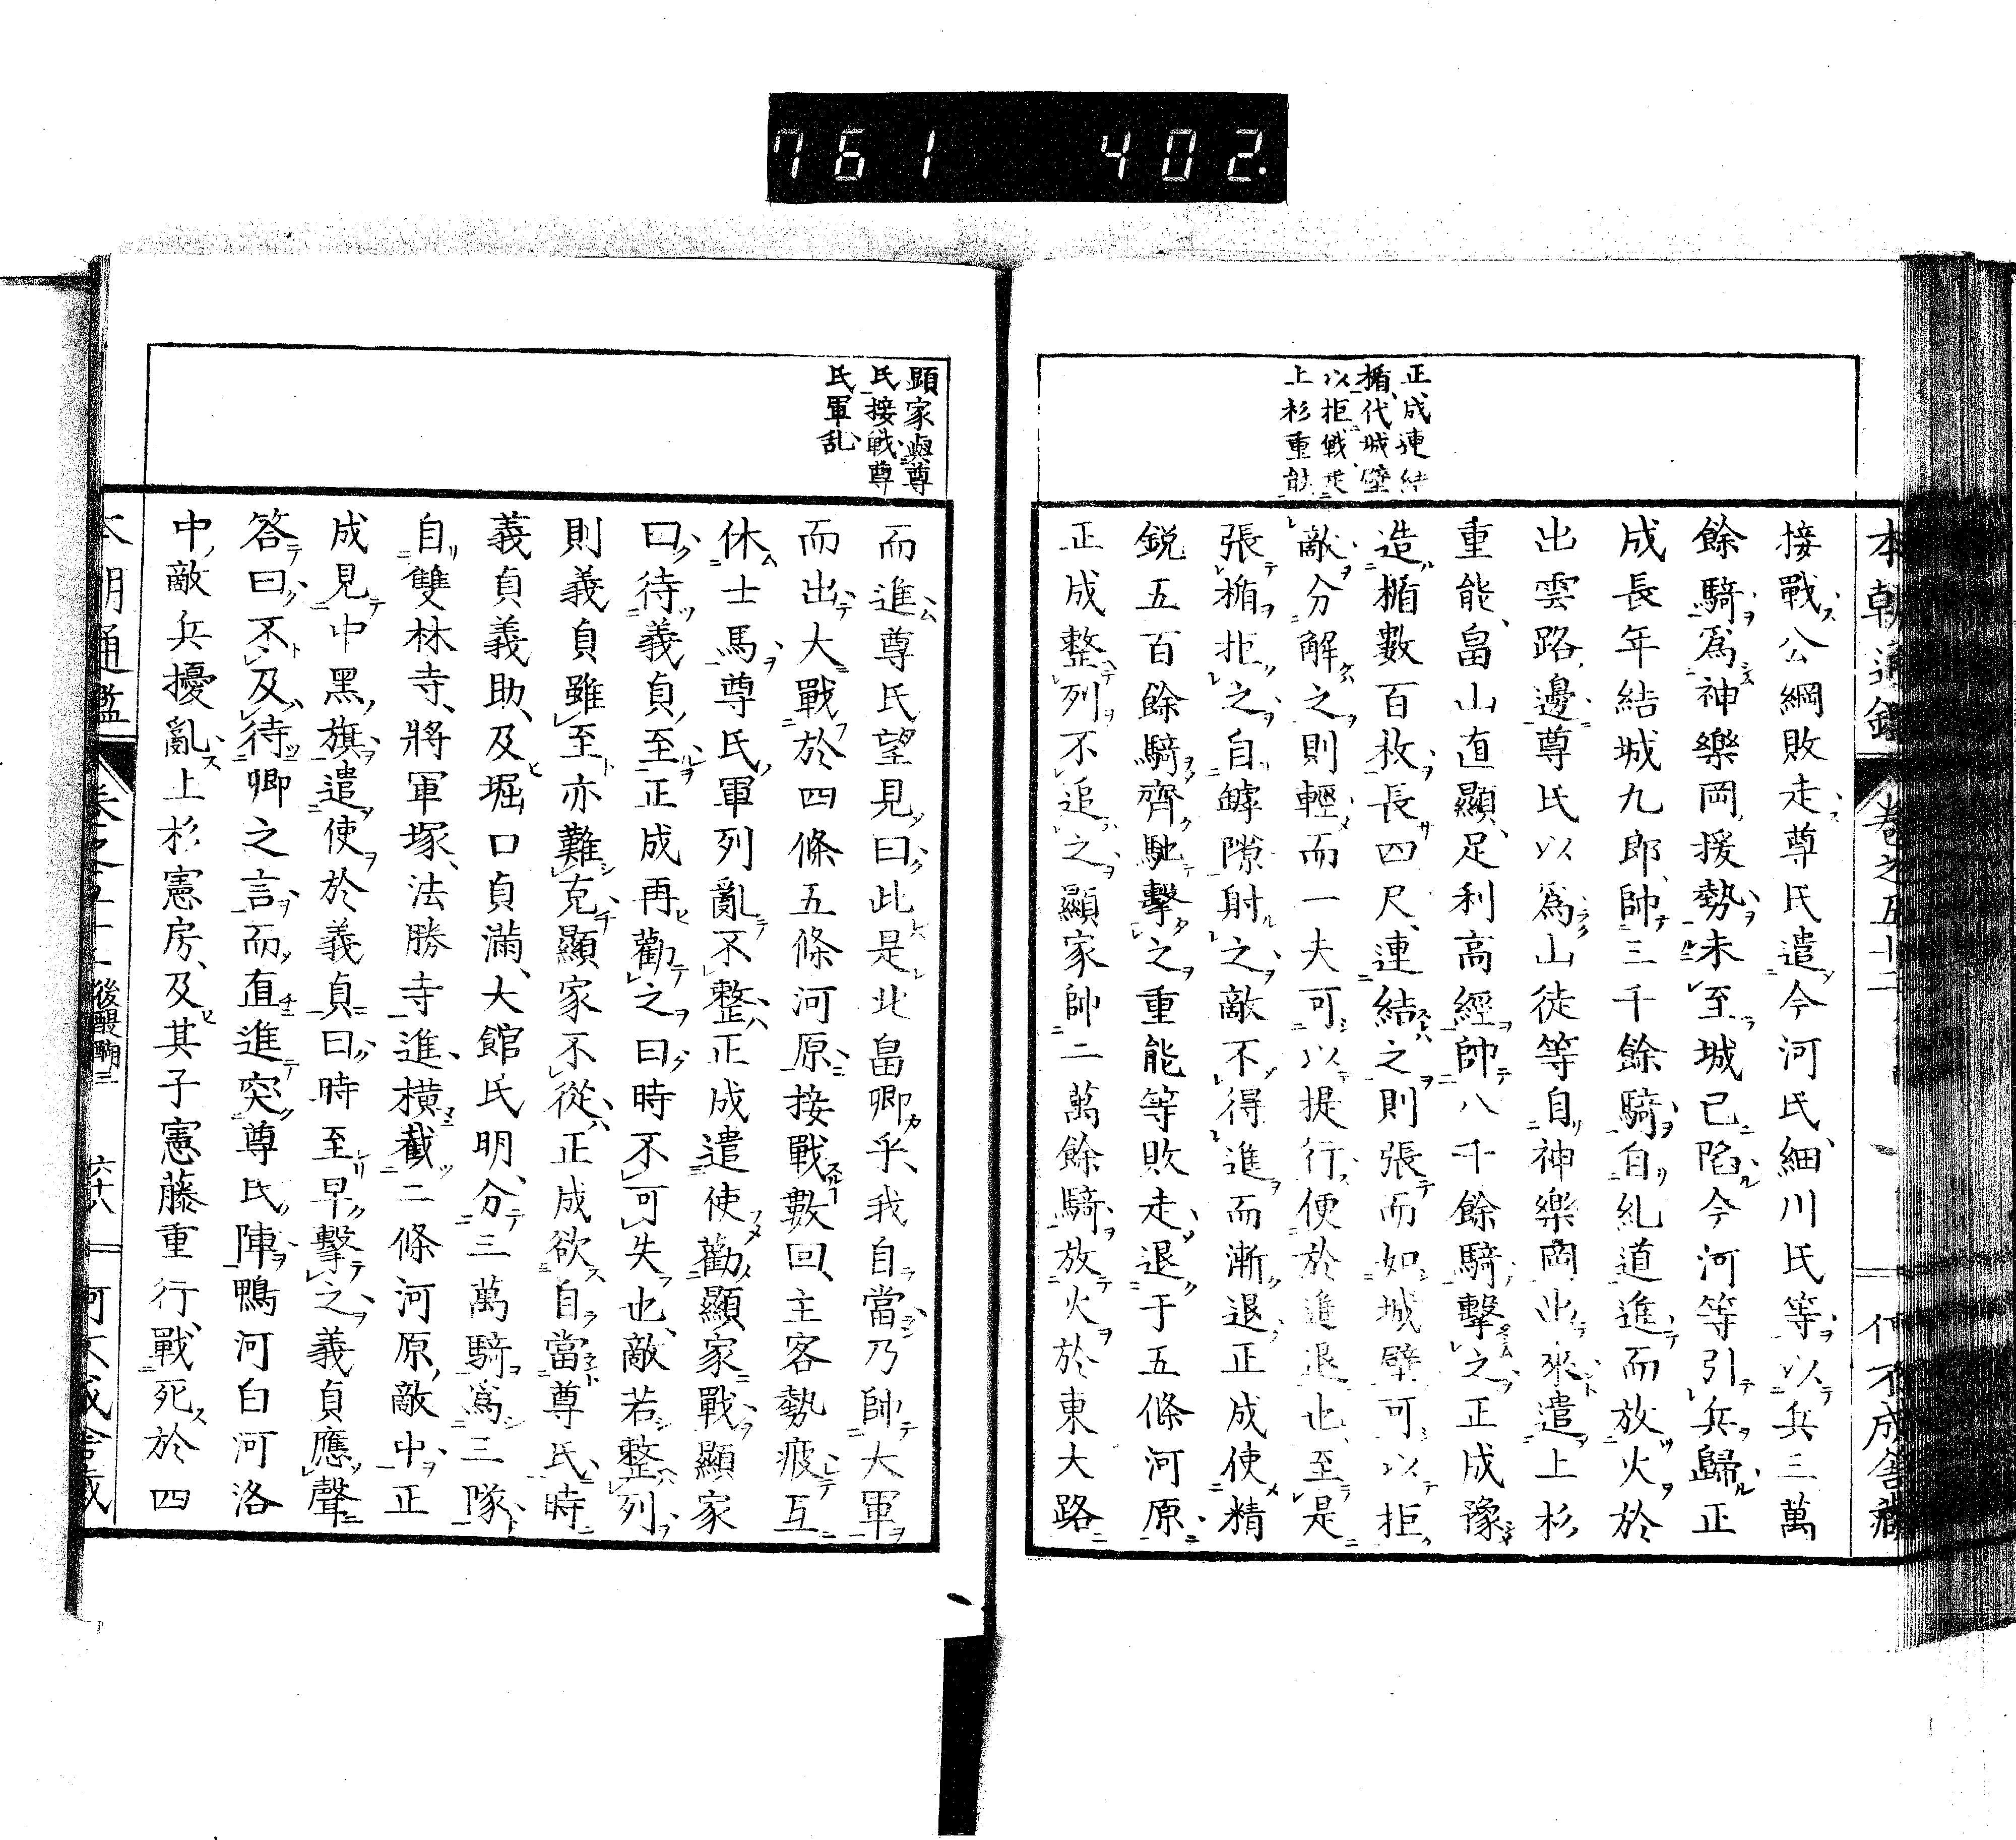 761 402.
本朝通鑑 卷之五十二
正成連結
楯代城壁
以拒戰
上杉重能
接戰公綱敗走尊氏遣今河氏細川氏等以兵三萬
餘騎爲神樂岡援勢未至城已陷今河等引兵歸正
成長年結城九郎帥三千餘騎自糺道進而放火於
出雲路邊尊氏以爲山徒等自神樂岡出來遣上杉
重能畠山直顯足利高經帥八千餘騎擊之正成豫
造楯數百枚長四尺連結之則張而如城壁可以拒
敵分解之則輕而一夫可以提行便於進退也至是
張楯拒之自罅隙射之敵不得進而漸退正成使精
銳五百餘騎齊馳擊之重能等敗走退于五條河原
正成整列不追之顯家帥二萬餘騎放火於東大路
顕家與尊
氏接戦尊
氏軍乱
而進尊氏望見曰此是北畠卿乎我自當乃帥大軍
而出大戰於四條五條河原接戰數回主客勢疲互
休士馬尊氏軍列亂不整正成遣使勸顯家戰顯家
曰待義貞至正成再勸之曰時不可失也敵若整列
則義貞雖至亦難克顯家不從正成欲自當尊氏時
義貞義助及堀口貞滿大館氏明分三萬騎爲三隊
自雙林寺將軍塚法勝寺進橫截二條河原敵中正
成見中黑旗遣使於義貞曰時至早擊之義貞應聲
答曰不及待卿之言而直進突尊氏陣鴨河白河洛
中敵兵擾亂上杉憲房及其子憲藤重行戰死於四
本朝通鑑 後醍醐三 六十八